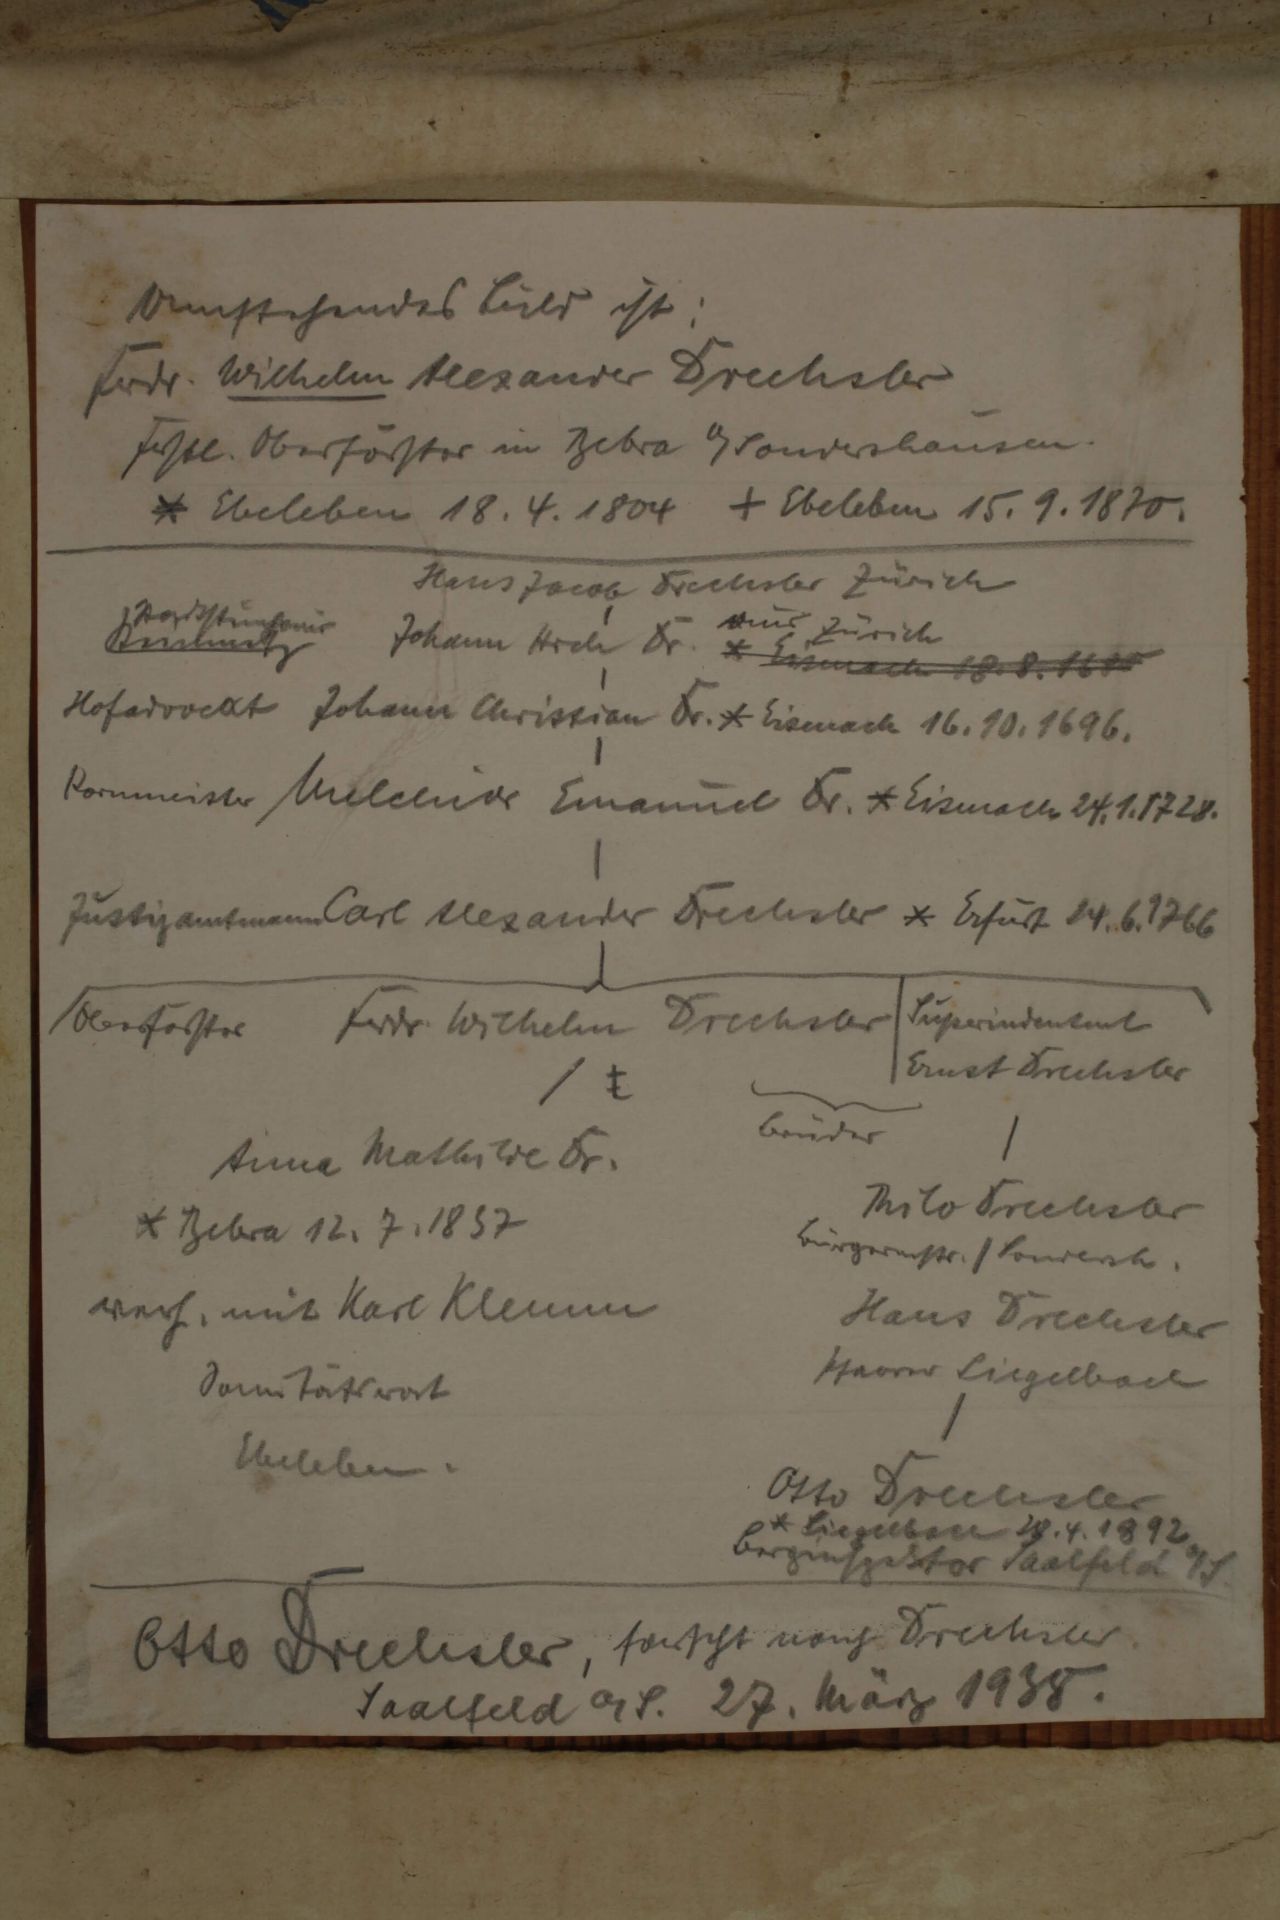 Umstehendes Bild ist:
Ferdr. Wilhelm Alexander Drechsler
Fürstl. Oberförster in Bebra b/Sondershausen.
* Ebeleben 18.4.1804 + Ebeleben 15.9.1870.
Hans Jacob Drechsler Zürich
Johann Dr. aus Zürich
* Eisenach 18.8.16
Hofadvocat Johann Christian Dr. * Eisenach 16.10.1696.
Kornmeister Melchior Emanuel Dr. * Eisenach 24.1.1728.
Justizamtmann Carl Alexander Drechsler * Erfurt 24.6.1766
Oberförster Ferdr. Wilhelm Drechsler
Superindentent
Ernst Drechsler
Brüder
Anna Mathilde Dr.
* Bebra 12.7.1837
verh. mit Karl Klemm
Sanitätsrat
Ebeleben.
Thilo Drechsler
Bürgermstr. / Sondersh.
Hans Drechsler
Pfarrer Siegelbach
Otto Drechsler
* Siegelbach 28.4.1892
Berginspektor Saalfeld a/S.
Otto Drechsler, forscht nach Drechsler.
Saalfeld a/S. 27. März 1938.